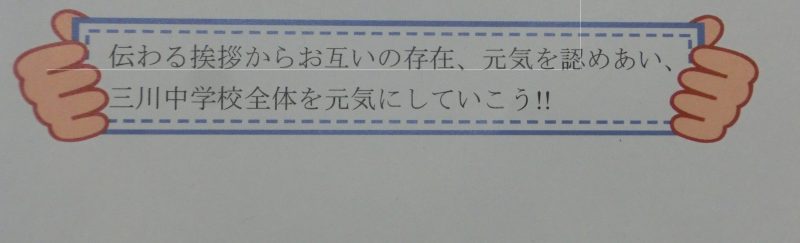 伝わる挨拶からお互いの存在、元気を認めあい、
三川中学校全体を元気にしていこう!!